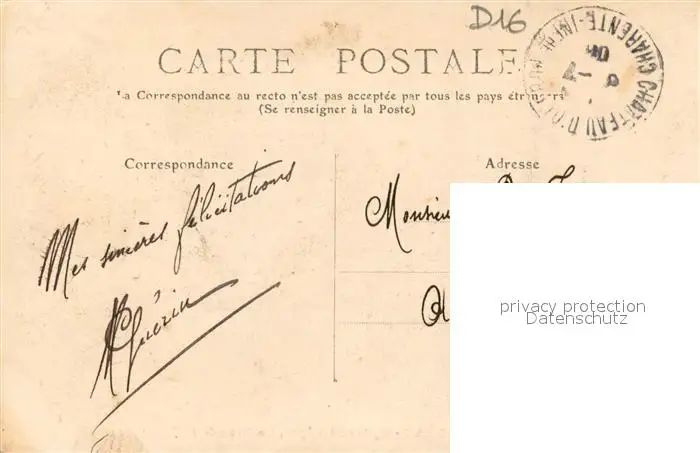 D16
CARTE POSTALE
La Correspondance au recto n'est pas acceptée par tous les pays étrangers
(Se renseigner à la Poste)
CHATEAU D'O
CHARENTE-INFRE
Correspondance
Adresse
Mes sincères félicitations
Guérin
Monsieur
privacy protection
Datenschutz